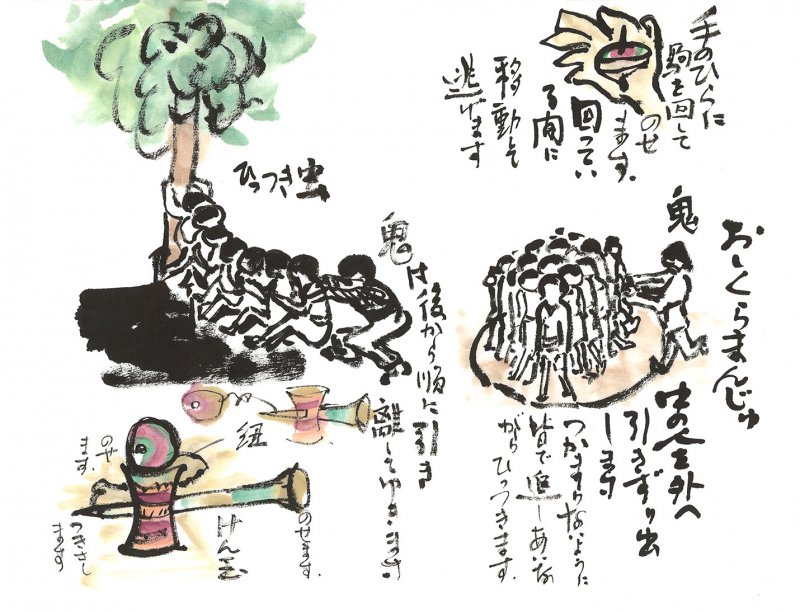 手のひらに
駒を回して
のせ
ます。
回ってい
る間に
移動して
逃げます
おしくらまんじゅ
鬼
中の人を外へ
引きずり出
します
つかまらないように
皆で押しあいな
がらひっつきます。
ひっつき虫
鬼は後から順に引き
離してゆきます
紐
のせ
ます。
けん玉
のせます。
つきさし
ます